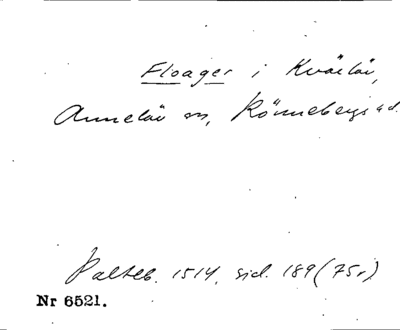 Floager i Kvärlöv,
Annelöv sn, Rönnebergs hd.
Palteb. 1514, sid. 189 (75r)
Nr 6521.